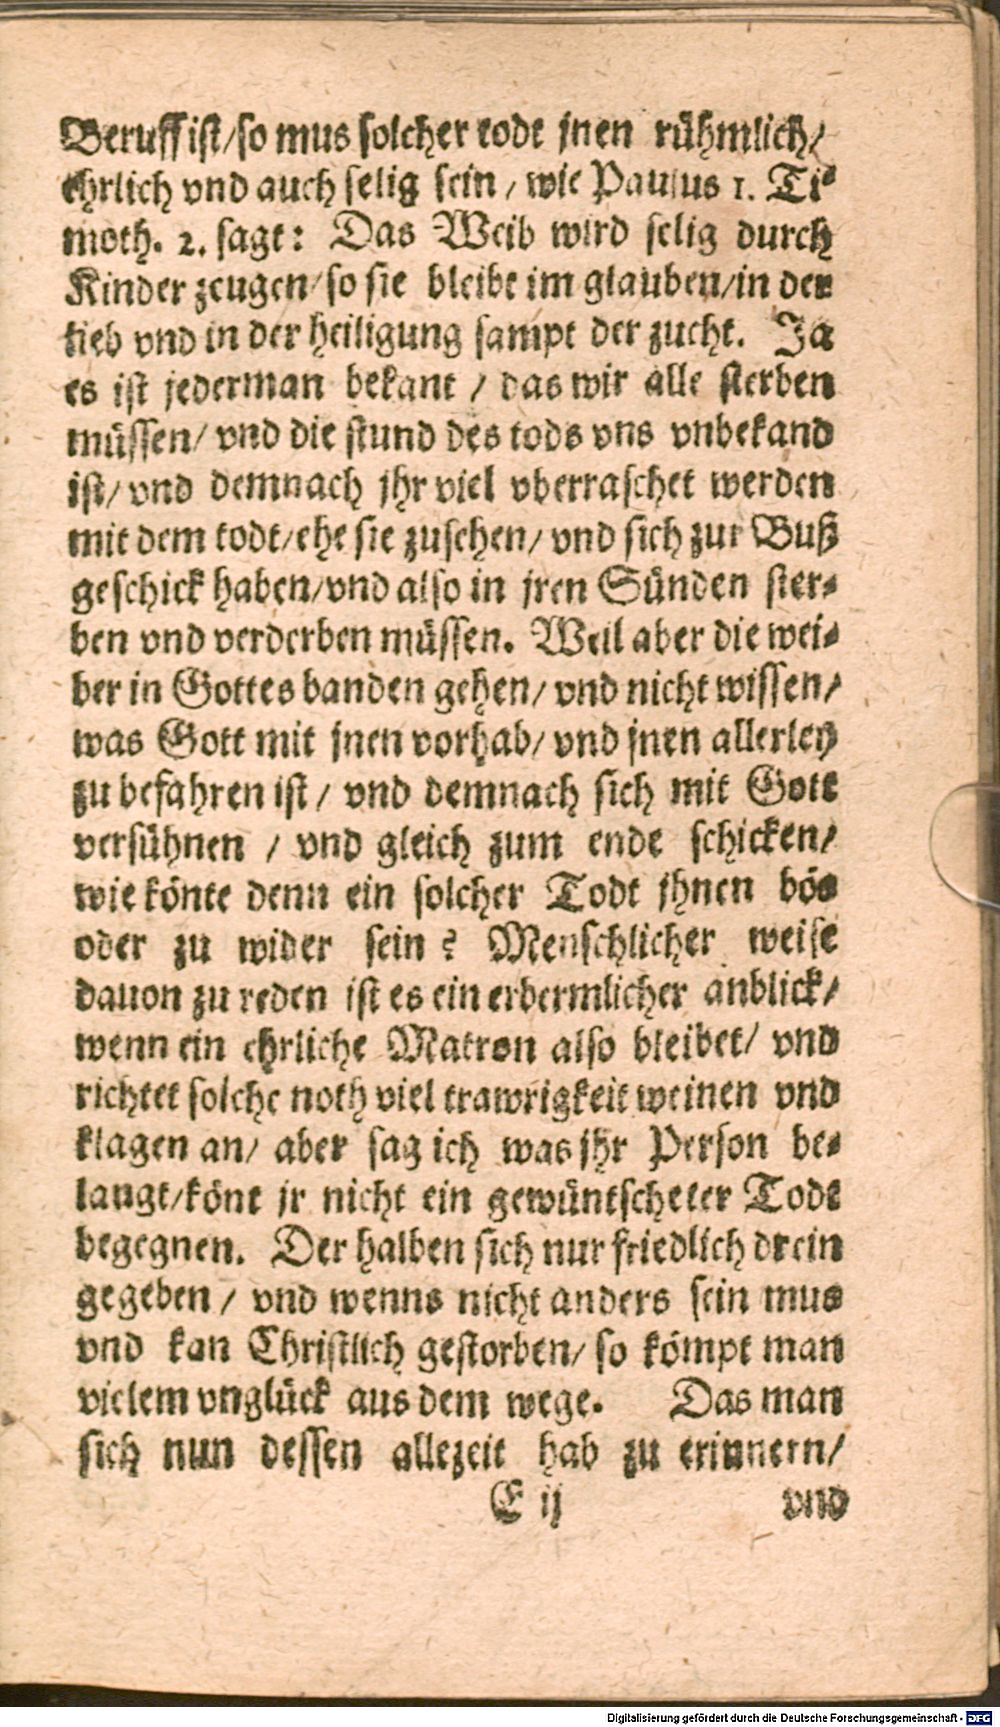 Beruff ist/so mus solcher todt jnen rühmlich/
ehrlich vnd auch selig sein/ wie Paulus 1. Ti⸗
moth. 2. sagt: Das Weib wird selig durch
Kinder zeugen/so sie bleibt im glauben/in der
lieb vnd in der heiligung sampt der zucht. Ja
es ist jederman bekant / das wir alle sterben
müssen/ vnd die stund des tods vns vnbekand
ist/ vnd demnach jhr viel vberraschet werden
mit dem todt/ehe sie zusehen/ vnd sich zur Buß
geschick haben/vnd also in jren Sünden ster⸗
ben vnd verderben müssen. Weil aber die wei⸗
ber in Gottes banden gehen/ vnd nicht wissen/
was Gott mit jnen vorhab/ vnd jnen allerley
zu befahren ist/ vnd demnach sich mit Gott
versühnen / vnd gleich zum ende schicken/
wie könte denn ein solcher Todt jhnen bös
oder zu wider sein? Menschlicher weise
dauon zu reden ist es ein erbermlicher anblick/
wenn ein ehrliche Matron also bleibet/ vnd
richtet solche noth viel trawrigkeit weinen vnd
klagen an/ aber sag ich was jhr Person be⸗
langt/könt jr nicht ein gewüntscheter Todt
begegnen. Der halben sich nur friedlich drein
gegeben/ vnd wenns nicht anders sein mus
vnd kan Christlich gestorben/ so kömpt man
vielem vnglück aus dem wege. Das man
sich nun dessen allezeit hab zu erinnern/
E ij vnd
Digitalisierung gefördert durch die Deutsche Forschungsgemeinschaft - DFG